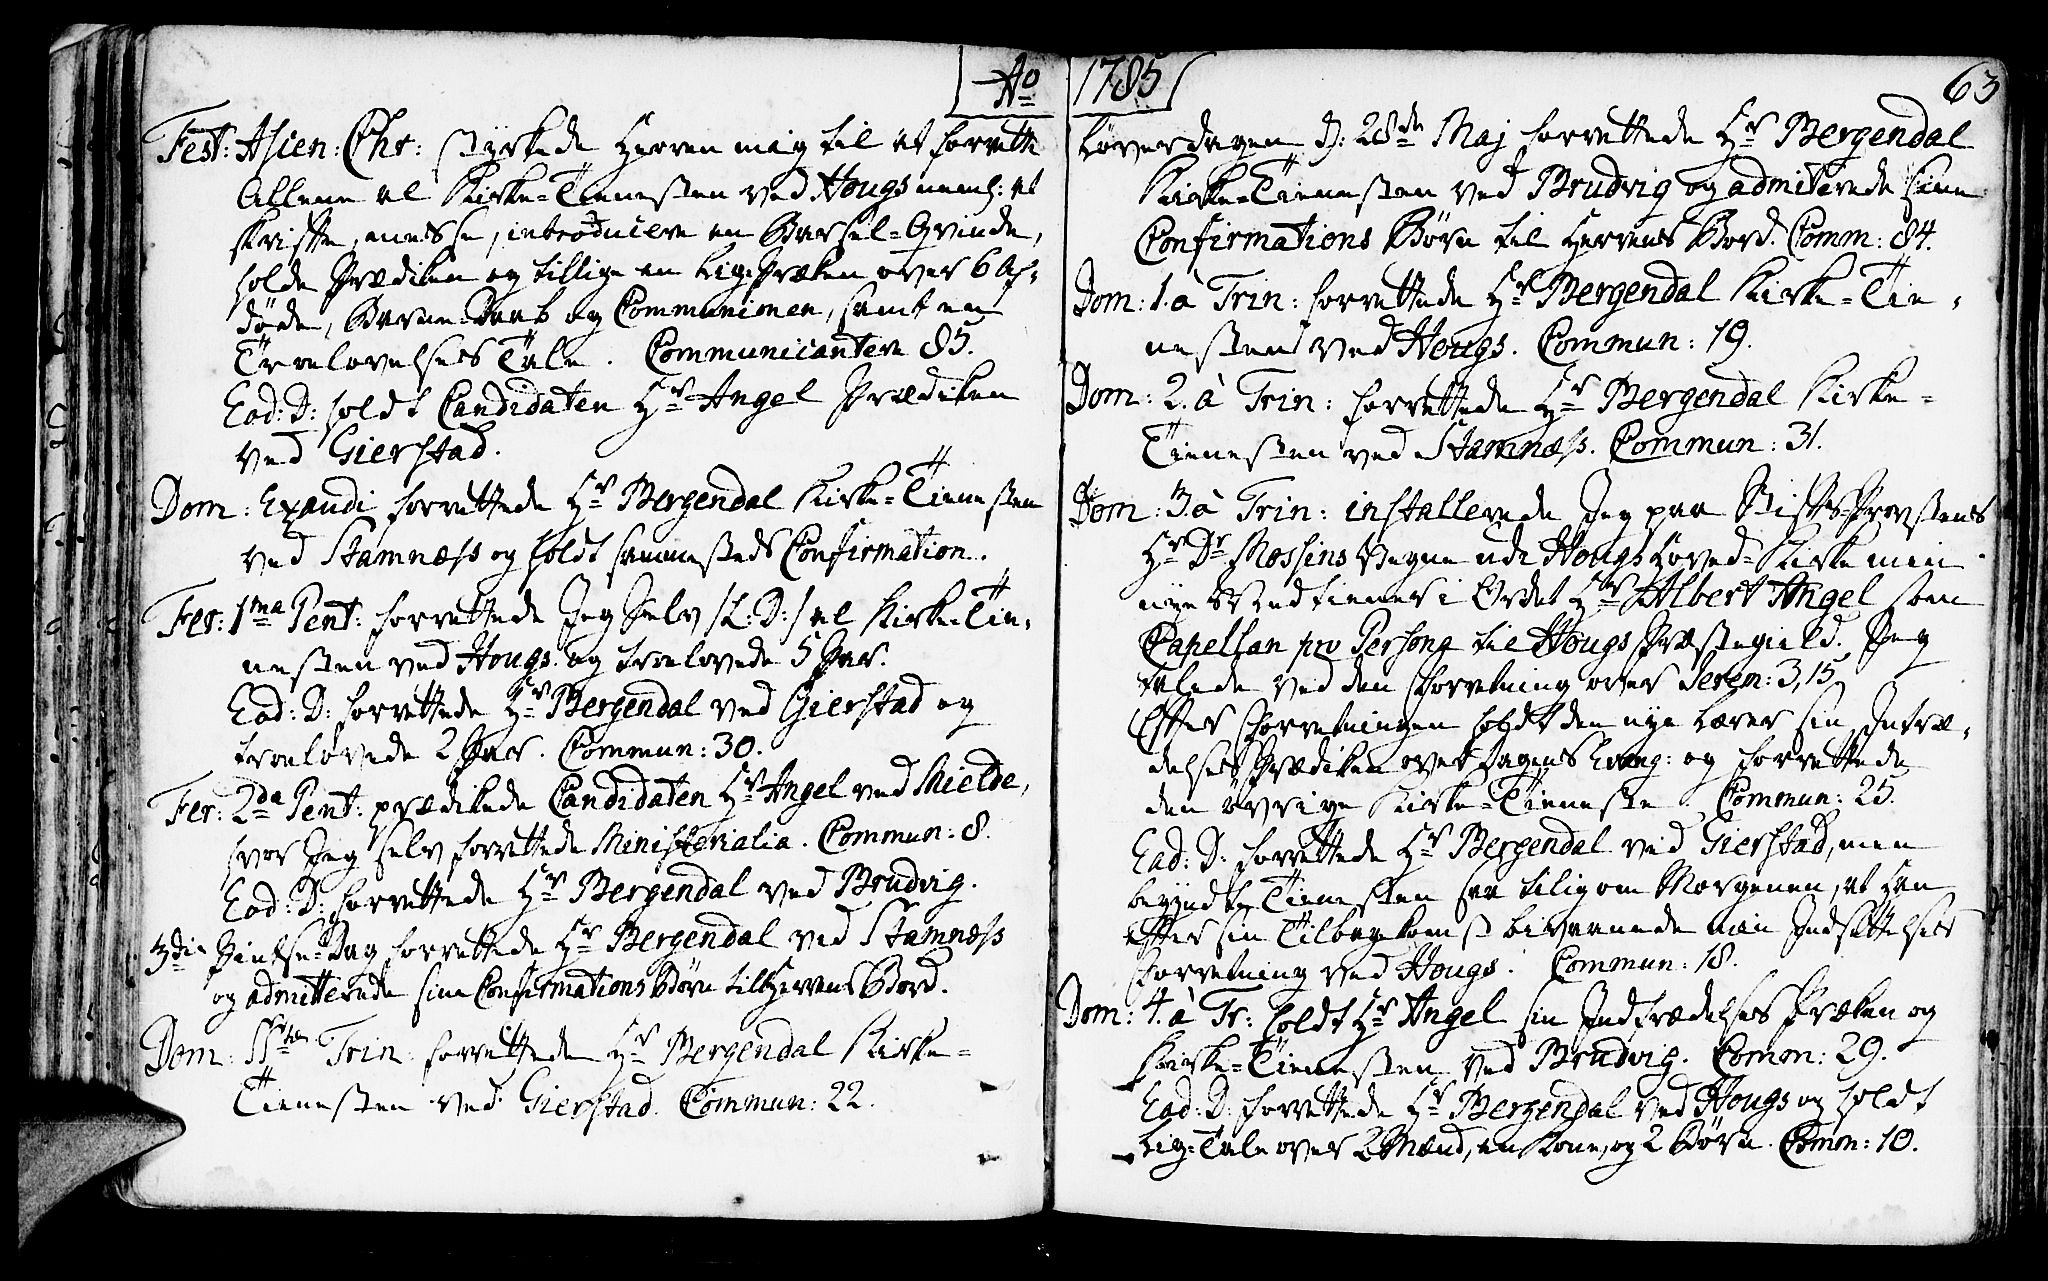 Ao
Fest: Asien: Chr: styrkede Herren mig til at forrette
Allene al Kirke=Tienesten ved Hougs neml: at
skrifte, messe, introducere en Barsel=Qvinde,
holde Prædiken og tillige en Lig=Præken over 6 Af-
døde, Barne=Daab og Communionen, samt en
Troelovelses Tale. Communicantere 85.
Eod: D: holdt Candidaten Hr Angel Prædiken
ved Gierstad.
Dom: Exaudi forrettede Hr Bergendal Kirke=Tienesten
ved Stamnæss og holdt sammesteds Confirmation.
Fer: 1ma Pent: forrettede Jeg Selv /L: D:/ al Kirke-Tie-
nesten ved Hougs. og troelovede 5 Par.
Eod: D: forrettede Hr Bergendal ved Gierstad og
troelovede 2 Par. Commun: 30.
Fer: 2da Pent: prædikede Candidaten Hr Angel ved Skielde,
hvor Jeg selv forrettede Ministerialia. Commun: 8.
Eod: D: forrettede Hr Bergendal ved Brudvig.
3die Pintse=Dag forrettede Hr Bergendal ved Stamnæss
og admitterede sine Confirmations Børn til Herrens Bord.
Dom: SSta Trin: forrettede Hr Bergendal Kirke=
Tienesten ved Gierstad. Commun: 22.
1785
63
Løverdagen D: 28de Maj forrettede Hr Bergendal
Kirke=Tienesten ved Brudvig og admiterede sine
Confirmations Børn til Herrens Bord. Comm: 84.
Dom: 1. à Trin: forrettede Hr Bergendal Kirke=Tie-
nesten ved Hougs. Commun: 19.
Dom: 2. à Trin: forrettede Hr Bergendal Kirke=
Tienesten ved Stamnæss. Commun: 31.
Dom: 3 à Trin: installerede Jeg paa Stifts=Provstens
Hr Dr Mossins Vegne udi Hougs Hoved=Kirke min
nye Medtiener i Ordet Hr Albert Angel som
Capellan pro Persona til Hougs Præstegield. Jeg
talede ved den Forretning over Jerem: 3,15
Efter Forretningen holdt den nye Lærer sin Intræ-
delses Prædiken over Dagens Evang: og forrettede
den øvrige Kirke=Tieneste. Commun: 25.
Eod: D: forrettede Hr Bergendal ved Gierstad, men
begyndte Tienesten saa tilig om Morgenen, at han
efter sin Tilbagekomst bivaanede min Indsættelses
Forretning ved Hougs. Commun: 18.
Dom: 4. à Tr: holdt Hr Angel sin Indtrædelses Præken og
Kirke=Tienesten ved Brudvig. Comm: 29.
Eod: D: forrettede Hr Bergendal ved Hougs og holdt
Lig=Tale over 2 Mænd, en Kone, og 2 Børn. Comm: 10.